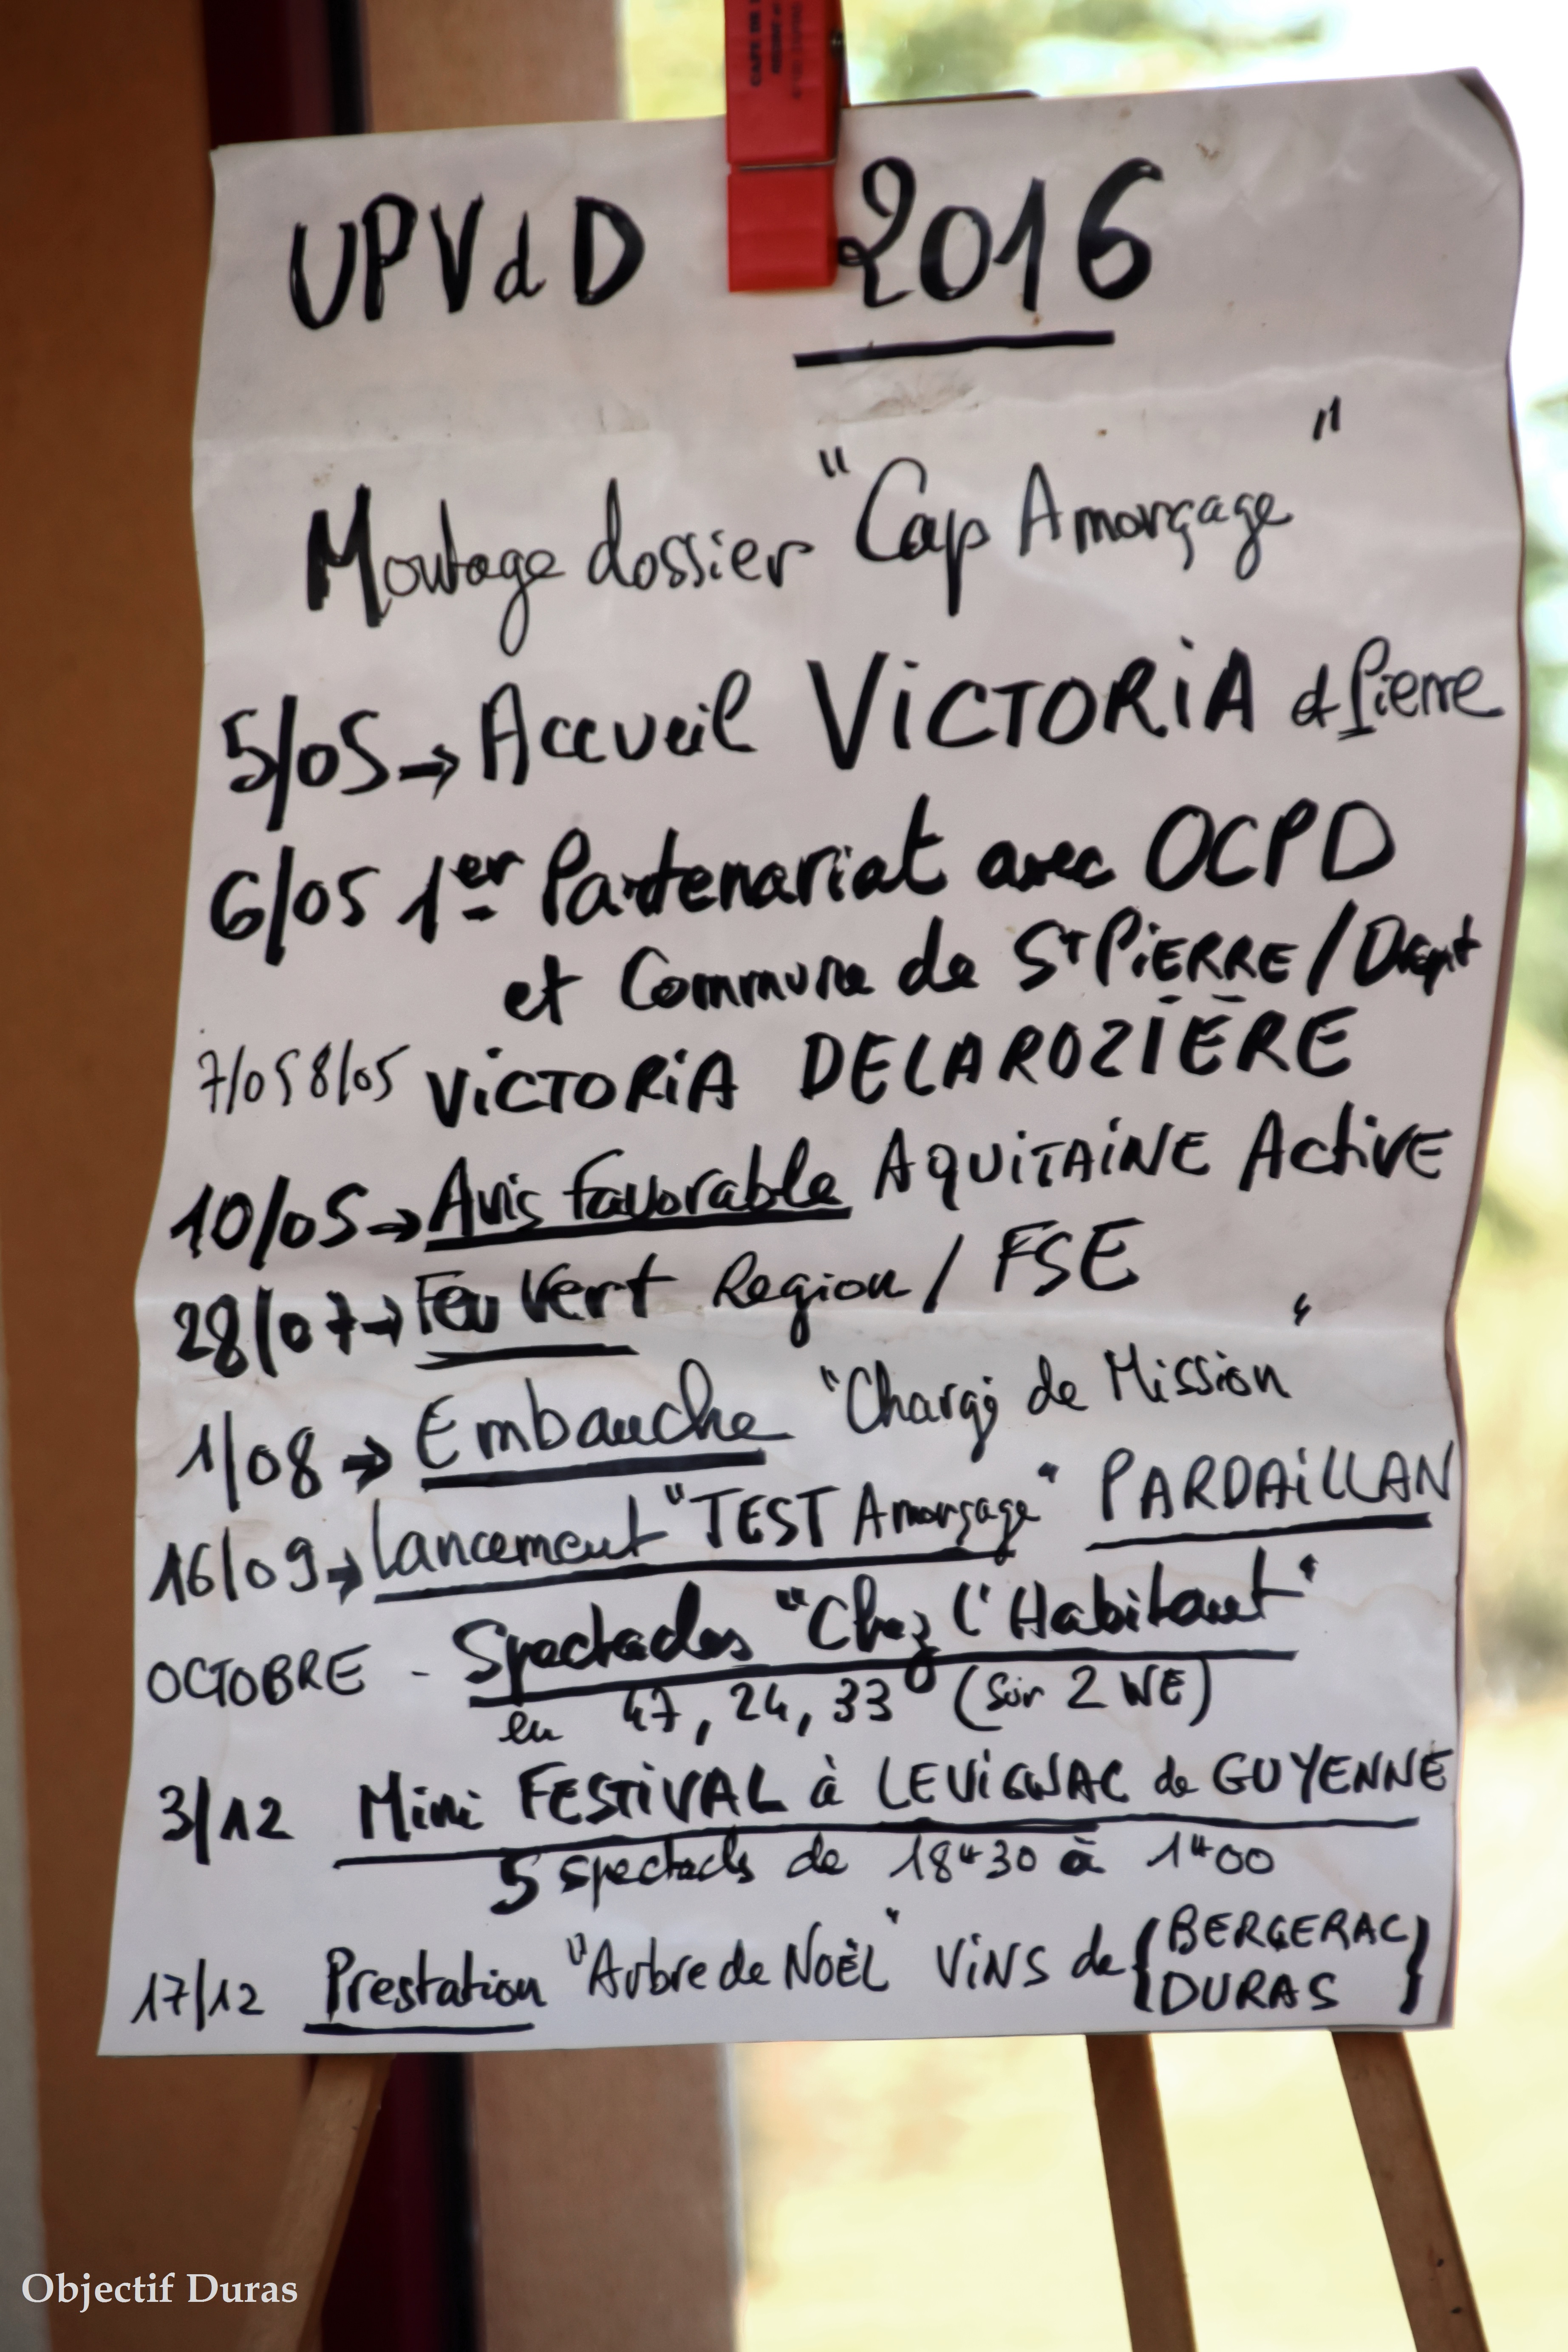 UPVdD 2016
Montage dossier "Cap Amorçage"
5/05 → Accueil VICTORIA et Pierre
6/05 1er Partenariat avec OCPD
et Commune de St PIERRE / Dropt
7/05 8/05 VICTORIA DELAROZIÈRE
10/05 → Avis favorable AQUITAINE Active
28/07 → Feu Vert Region / FSE
1/08 → Embauche "Chargé de Mission"
16/09 → Lancement "TEST Amorçage" PARDAILLAN
OCTOBRE - Spectacles "Chez l'Habitant"
en 47, 24, 33 (Sur 2 WE)
3/12 Mini FESTIVAL à LEVIGNAC de GUYENNE
5 spectacls de 18H30 à 1H00
17/12 Prestation "Arbre de NOËL" VINS de {BERGERAC
DURAS}
Objectif Duras